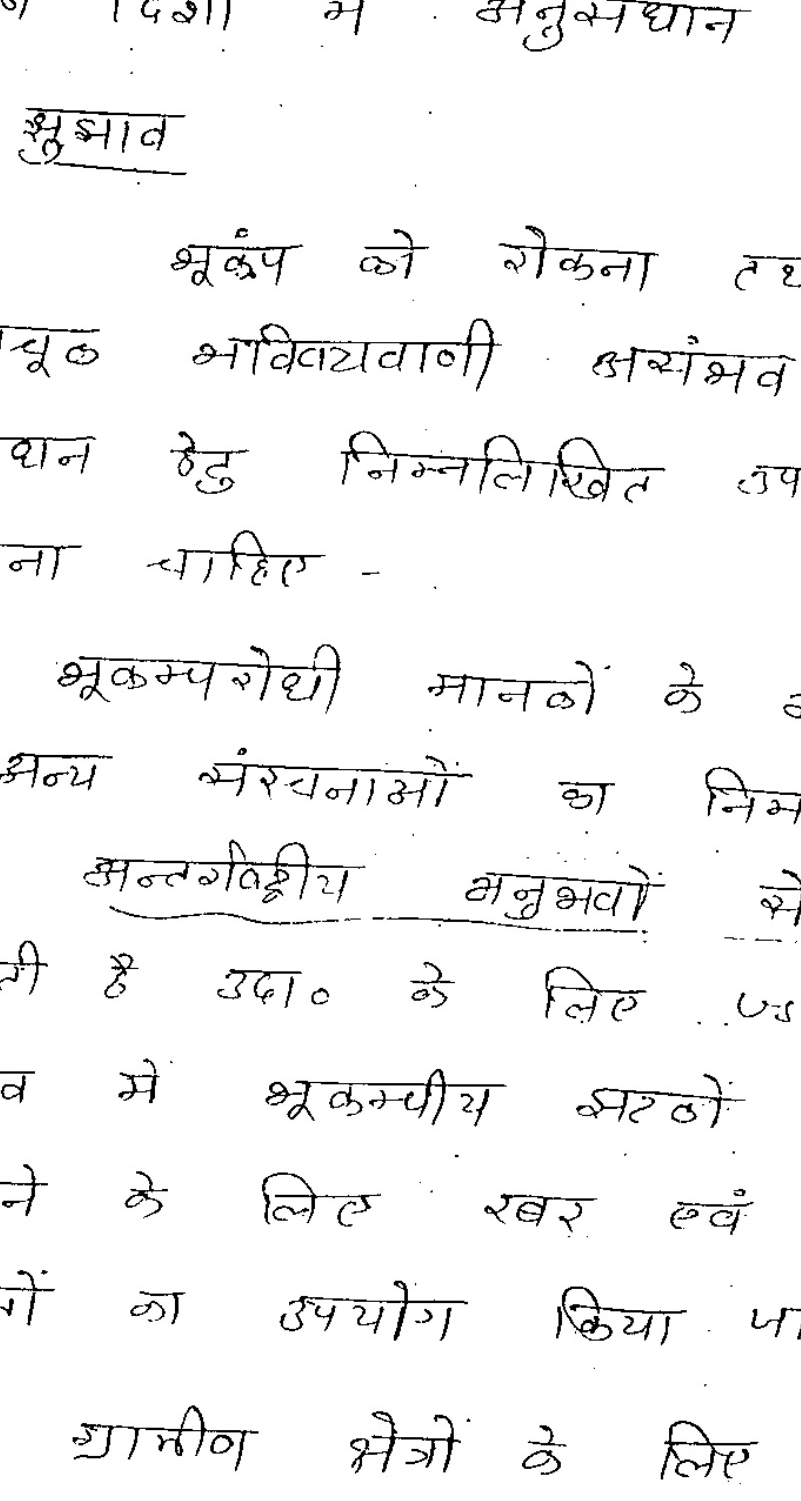 दिशा में अनुसंधान
सुझाव
भूकंप को रोकना तथ
चूक भविष्यवाणी असंभव
धन हेतु निम्नलिखित उप
ना चाहिए -
भूकम्परोधी मानकों के
अन्य संरचनाओं का निम
अन्तर्राष्ट्रीय अनुभवों से
ती है उदा० के लिए जा
व में भूकम्पीय झटकों
ने के लिए रबर एवं
गों का उपयोग किया जा
ग्रामीण क्षेत्रों के लिए